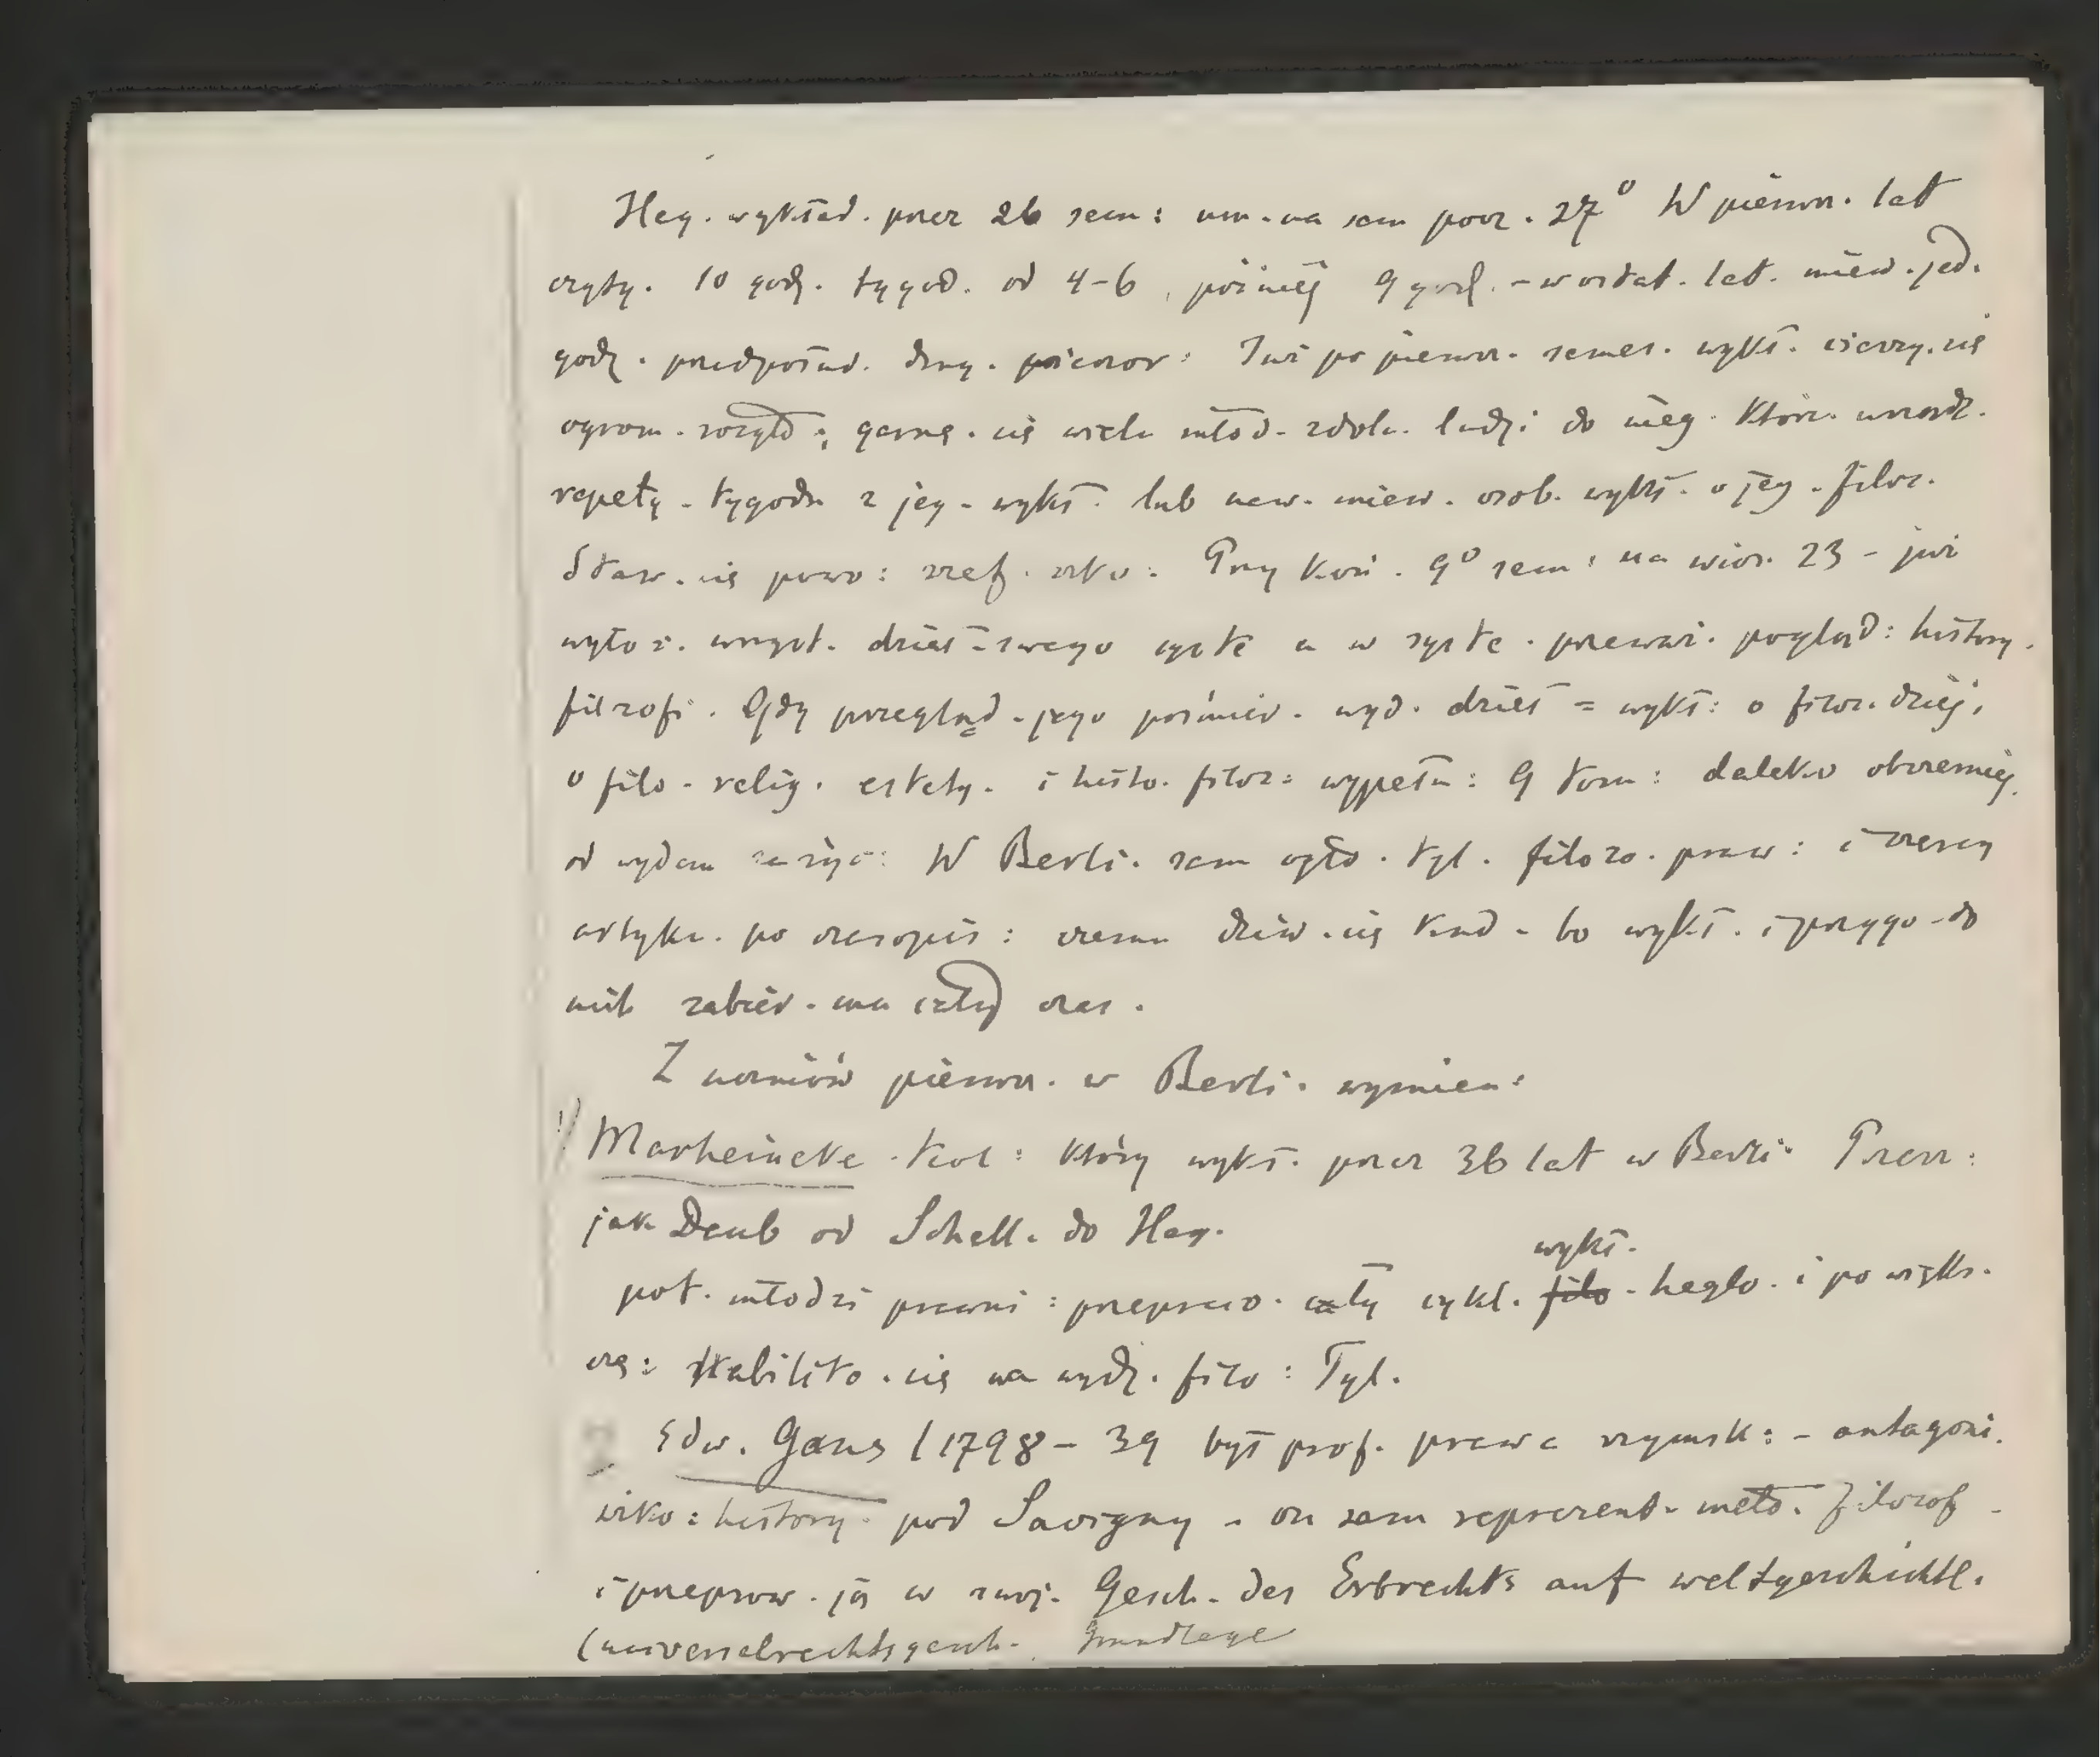 Heg. wykład. przez 26 sem: um. na sam pocz. 27º W pierwsz. lat
czyty. 10 godz. tygod. od 4-6, później 9 godz. - w ostat. lat. miew. jed.
godz. przedpołud. drug. wieczor: Już po pierwsz. semes. wykł. cieszy. się
ogrom. wzięt; garną. się wielu młod. zdoln. ludzi do nieg. Któr. urządz.
repety. tygodn z jeg. wykł. lub naw. miew. osob. wykł. o jeg. filoz.
Staw. się powo: szef. szko: Przy koń. 9º sem: na wios. 23 - już
wyłoż. wszyst. dział. swego syste a w syste. przeważ. pogląd: history.
filzofi. Gdy przegląd. jego pośmier. wyd. dzieł = wykł: o filoz. dziej,
o filo. relig. estety. i histo. filoz: wypełn: 9 tom: daleko obszerniej
od wydan za życ: W Berli. sam ogło. tyl. filozo. praw: i szereg
artyku. po czasopis: czemu dziw. się trud. bo wykł. i przygo. do
nich zabier. mu cały czas.
Z uczniów pierwsz. w Berli. wymien:
1) Marheineke. teol: który wykł. przez 36 lat w Berli. Przesz:
jak Daub od Schell. do Heg.
pot. młodzi prawni: przeprac. cały cykl. filo. wykł. heglo. i po więks.
czę: Habilito. się na wydz. filo: Tyl.
Edw. Gans (1798 - 39 był prof. prawa rzymsk: - antagoni.
szko: history. pod Savigny - on sam reprezent. meto. filozof -
i przeprow. ją w swoj. Gesch. des Erbrechts auf weltgeschichtl.
(universalrechtsgesch. Grundlage